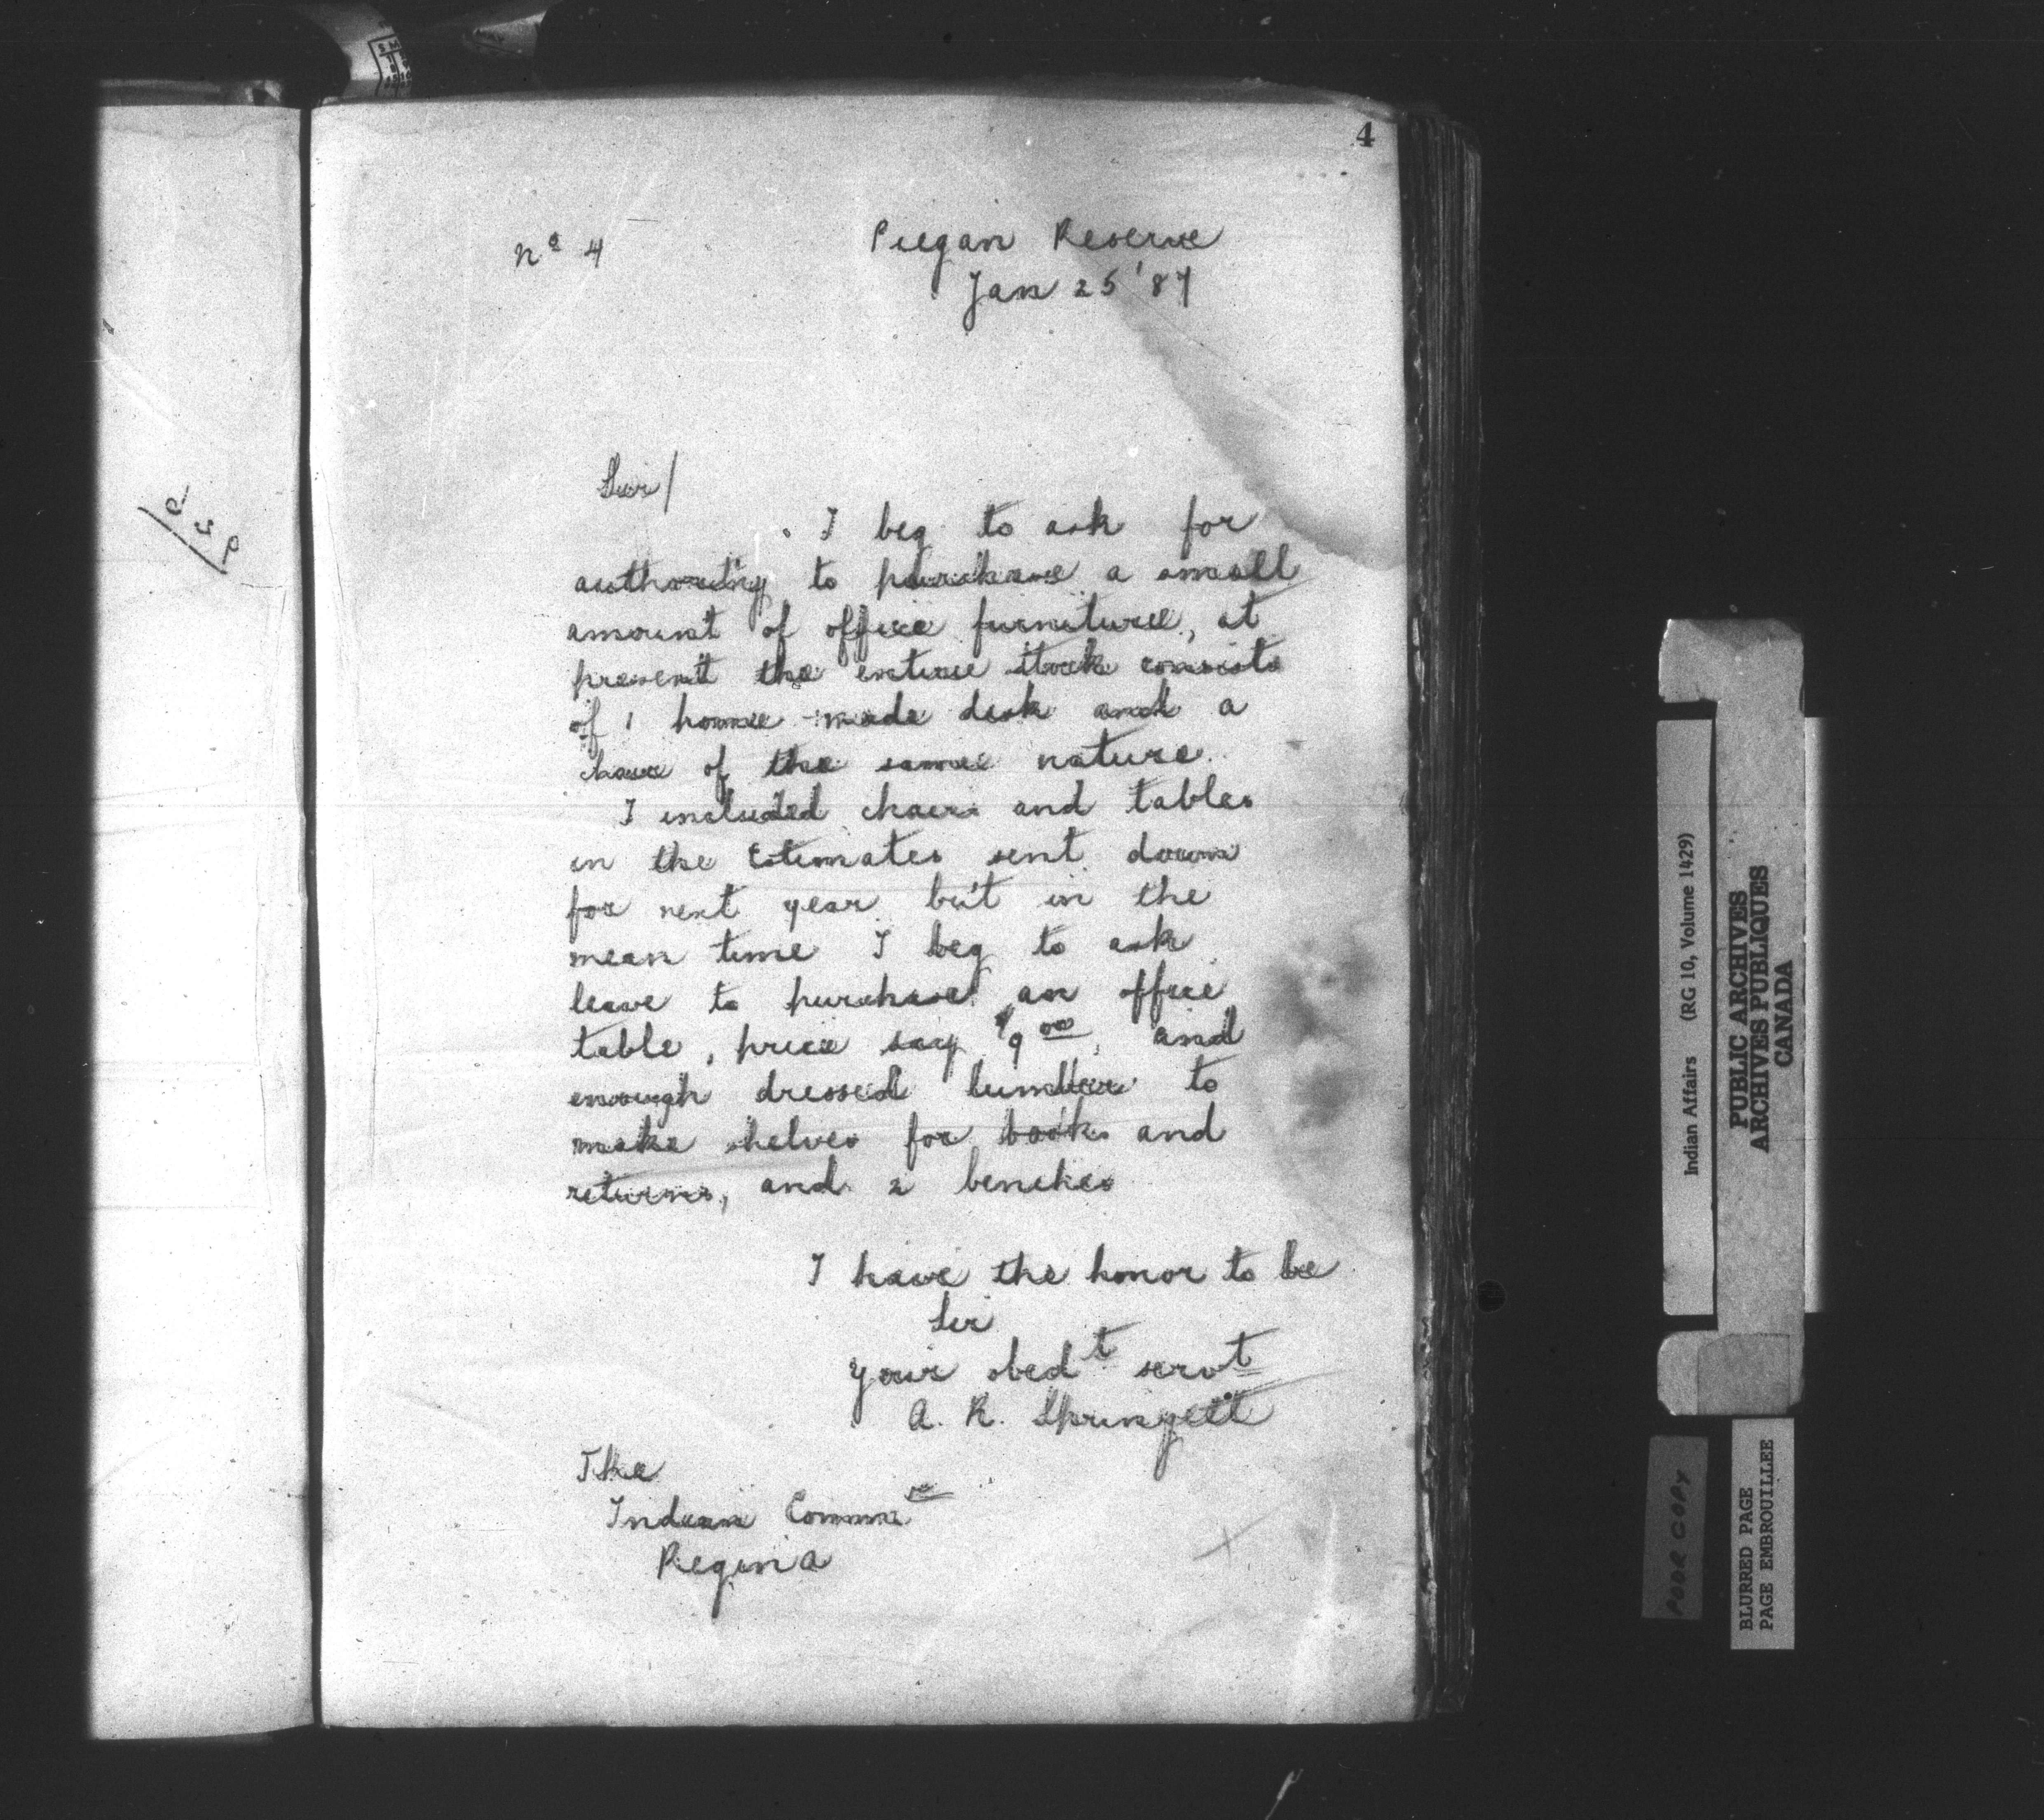 4
No 4
Piegan Reserve
Jan 25 '87
Sir/
I beg to ask for
authority to purchase a small
amount of office furniture, at
present the entire stock consists
of 1 home made desk and a
chair of the same nature.
I included chairs and tables
in the Estimates sent down
for next year but in the
mean time I beg to ask
leave to purchase an office
table, price say $9 00, and
enough dressed lumber to
make shelves for books and
returns, and 2 benches
I have the honor to be
Sir
Your obedt servt
A. R. Springett
The
Indian Commr
Regina
Indian Affairs (RG 10, Volume 1429)
PUBLIC ARCHIVES
ARCHIVES PUBLIQUES
CANADA
POOR COPY
BLURRED PAGE
PAGE EMBROUILLEE